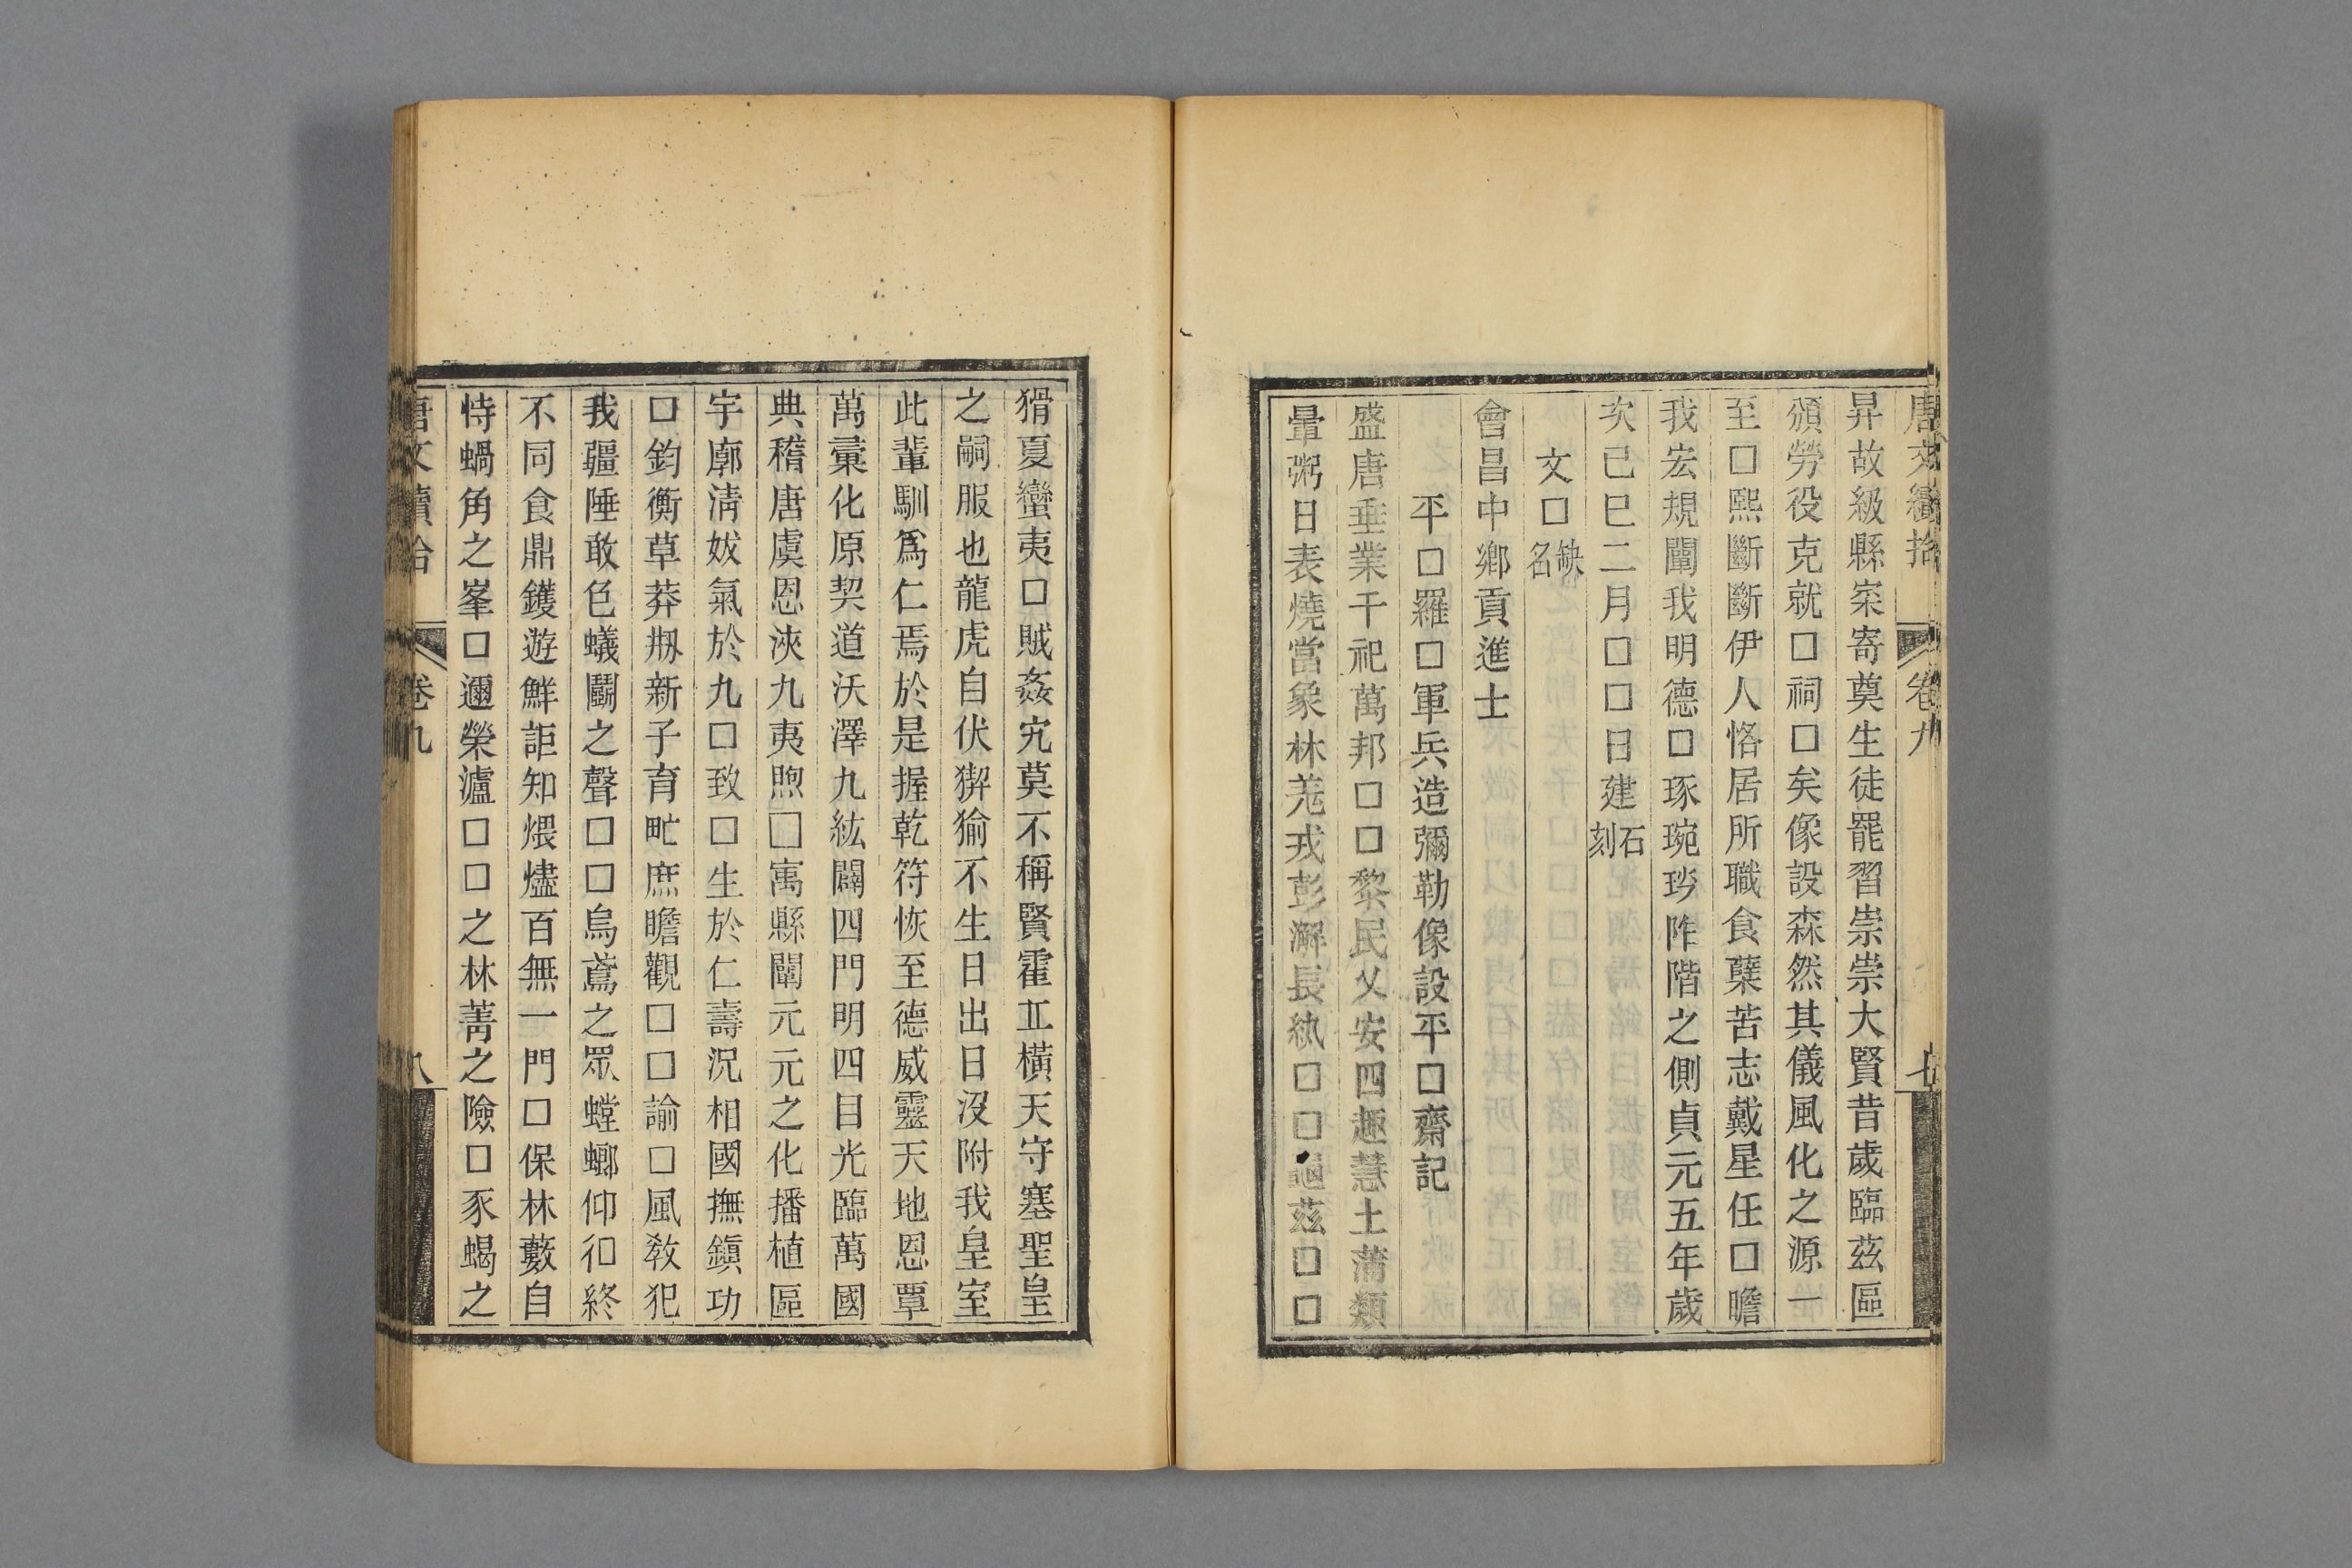 唐文續拾
卷九
七
昇故級縣寀寄奠生徒罷習崇崇大賢昔歲臨茲區
頒勞役克就□祠□矣像設森然其儀風化之源一
至□熙斷斷伊人恪居所職食蘖苦志戴星任□瞻
我宏規闡我明德□琢琬珍阼階之側貞元五年歲
次己巳二月□□日建石刻
文□缺名
會昌中鄉貢進士
平□羅□軍兵造彌勒像設平□齋記
盛唐垂業千祀萬邦□□黎民乂安四趣慧土蒲類
暈粥日表燒當象林羌戎彭澥長紈□□茲□□
猾夏蠻夷□賊姦宄莫不稱賢霍㐀橫天守塞聖皇
之嗣服也龍虎自伏猰㺄不生日出日沒附我皇室
此輩馴爲仁焉於是握乾符恢至德威靈天地恩覃
萬彙化原契道沃澤九紘闢四門明四目光臨萬國
典稽唐虞恩浹九夷煦□寓縣闡元元之化播植區
宇廓淸妭氣於九□致□生於仁壽況相國撫鎭功
□鈞衡草莽剏新子育甿庶瞻觀□□諭□風敎犯
我疆陲敢色蟻鬬之聲□□烏鳶之眾螳螂仰㣔終
不同食鼎鑊遊鮮詎知煨燼百無一門□保林藪自
恃蝸角之峯□邇榮瀘□□之林菁之險□豕蝎之
唐文續拾
卷九
八